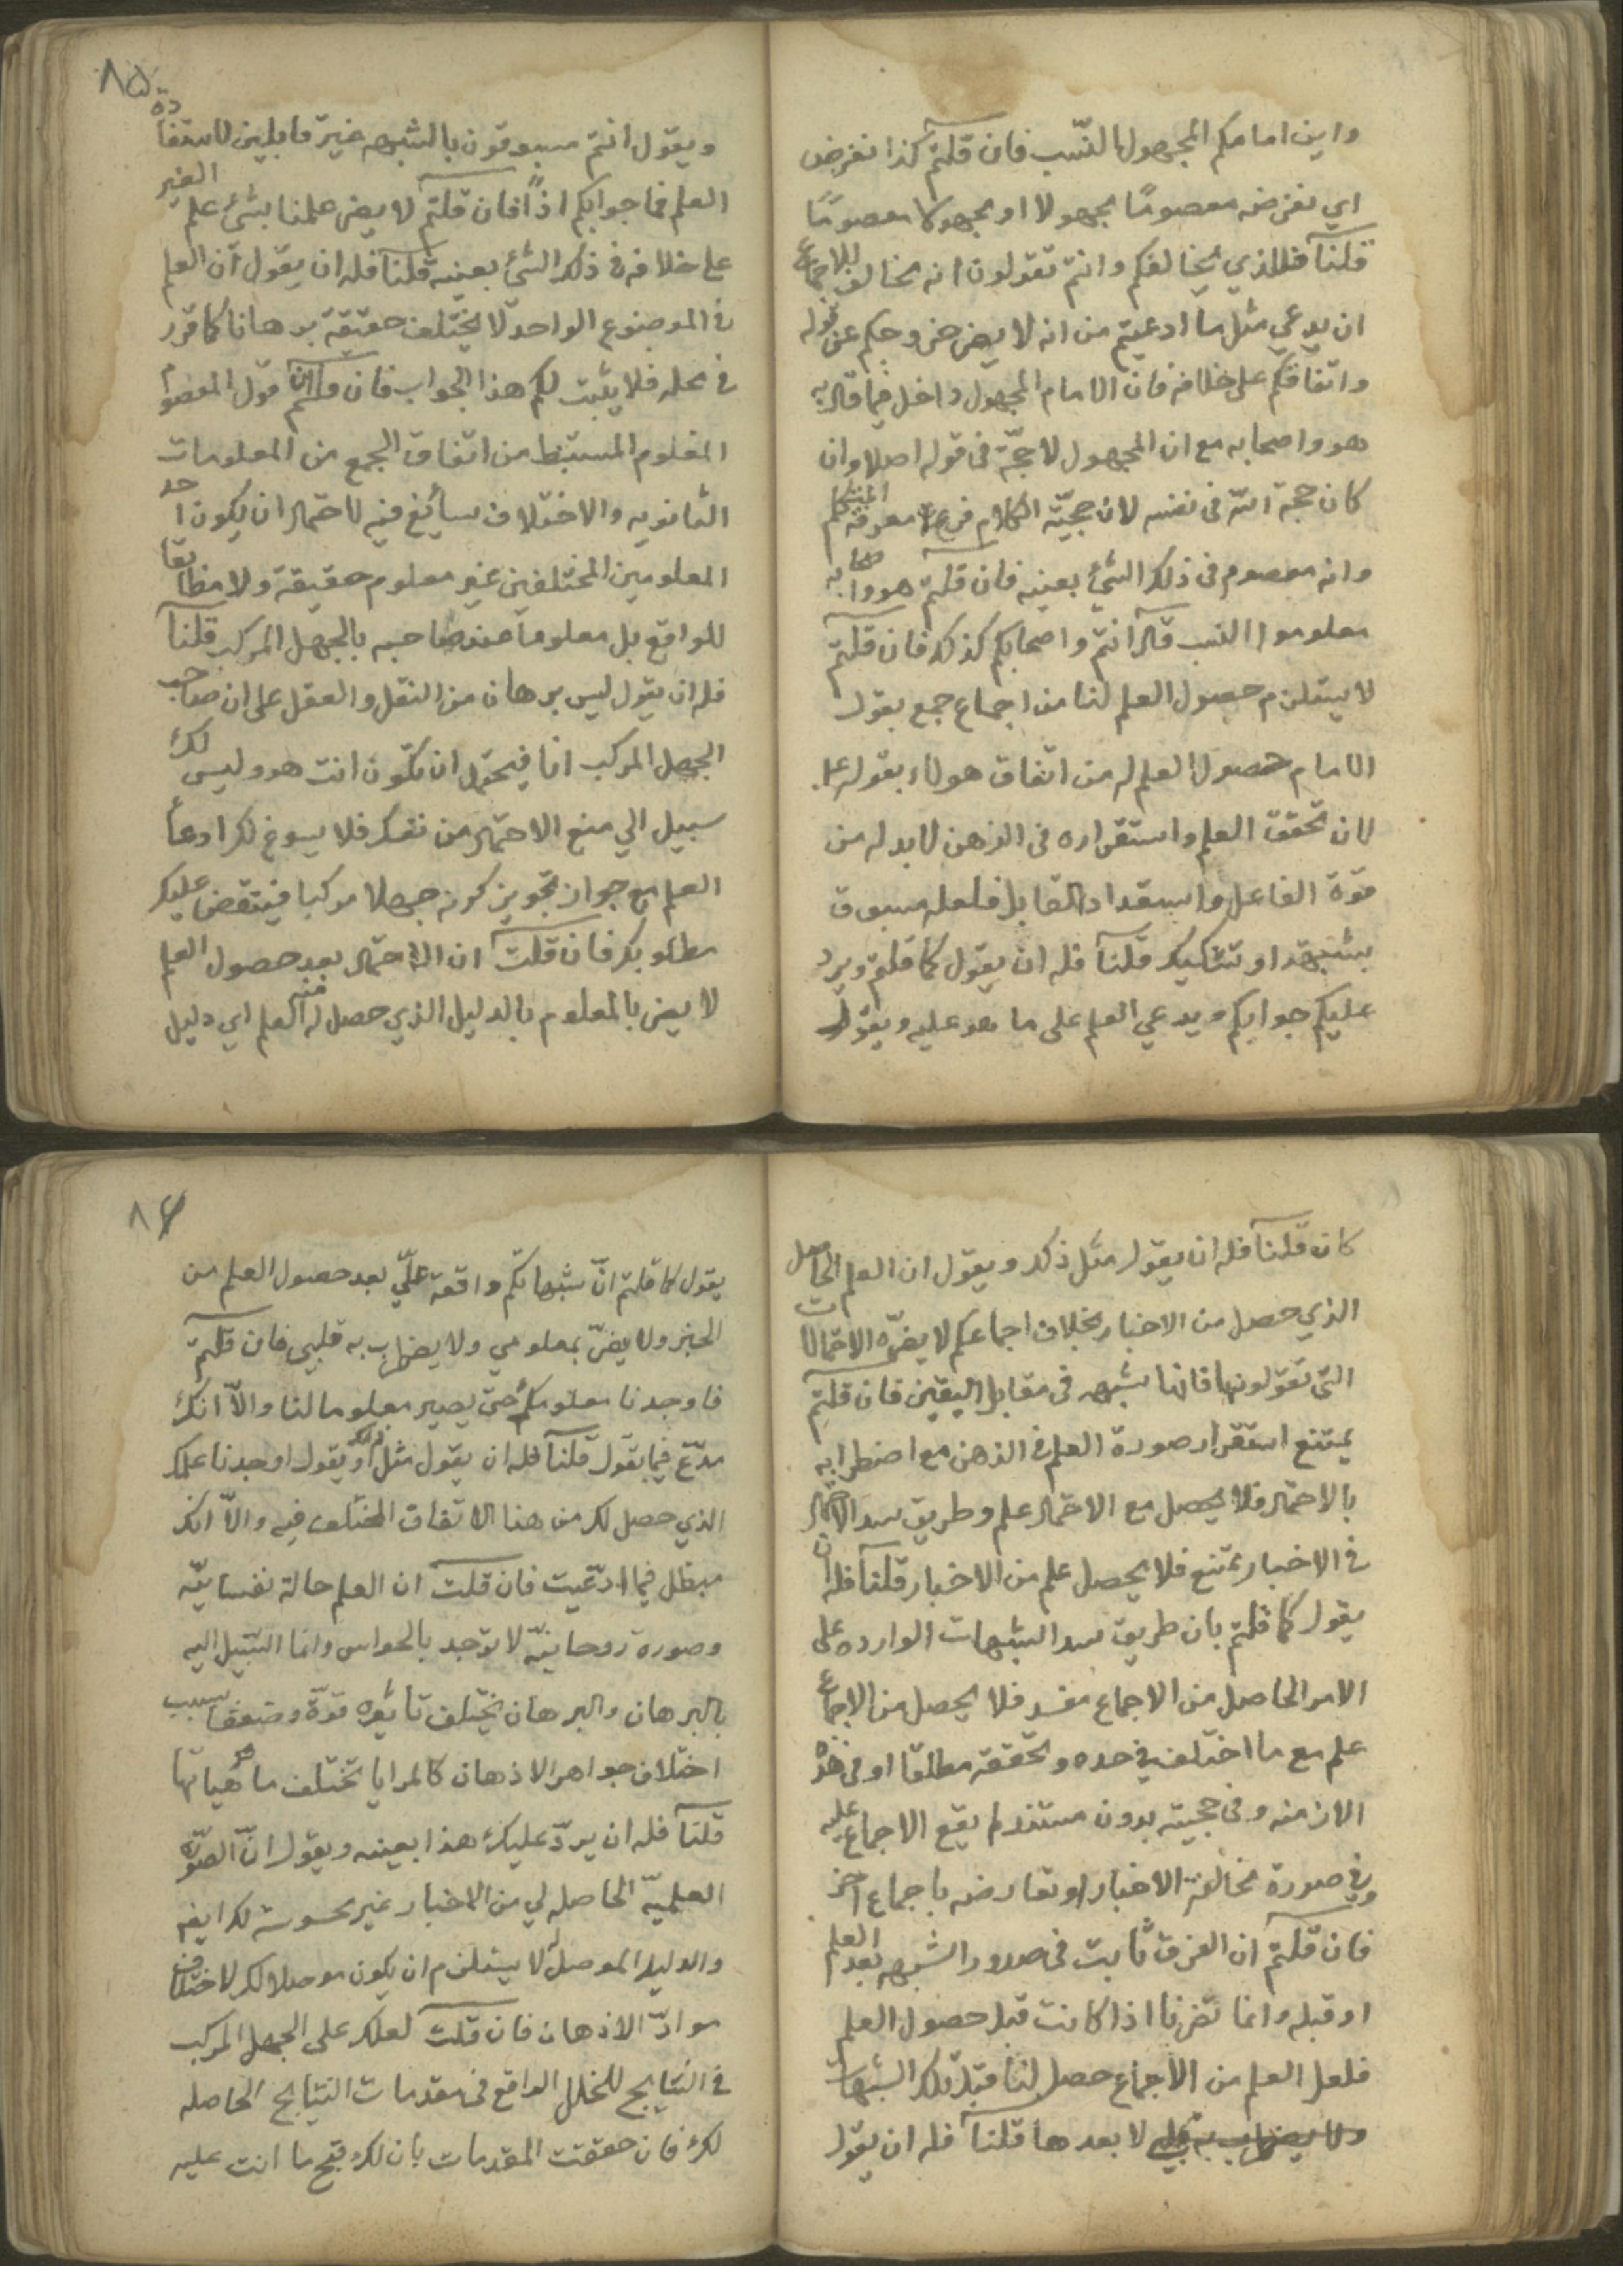 واين امامكم المجهول النسب فان قلتم كذا نفرض
اي نفرضه معصومًا مجهولا او مجهولا معصومًا
قلنا فللذي يخالفكم وانتم تقولون انه مخالف للاجماع
ان يدعي مثل ما ادعيتم من انه لا يضر خروجكم عن قوله
واتفاقكم على خلافه فان الامام المجهول داخل فيما قال به
هو واصحابه مع ان المجهول لا حجّة فى قوله اصلا وان
كان حجة الله فى نفسه لان حجيّة الكلام فرع معرفة المتكلم
وانه معصوم فى ذلك الشئ بعينه فان قلتم هو واصحابه
معلوموا النسب قال انتم واصحابكم كذلك فان قلتم
لا يستلزم حصول العلم لنا من اجماع جمع بقول
الامام حصول العلم له من اتفاق هولاء بقوله ع
لان تحقق العلم واستقراره فى الذهن لا بد له من
قوة الفاعل واستعداد القابل فلعله مسبوق
بشبهة او تشكيك قلنا فله ان يقول كما قلتم ويرد
عليكم جوابكم ويدعي العلم على ما هو عليه ويقول
٨٥
ويقول انتم مسبوقون بالشبهه غير قابلين لاستفادة
العلم فما جوابكم اذًا فان قلتم لا يضر علمنا بشئ علم الغير
على خلافه فى ذلك الشئ بعينه قلنا فله ان يقول ان العلم
فى الموضوع الواحد لا يختلف حقيقة برهانا كما قرر
فى محله فلا يثبت لكم هذا الجواب فان قلتم ان قول المعصوم
المعلوم المستنبط من اتفاق الجمع من المعلومات
الثانويه والاختلاف سائغ فيه لاحتمال ان يكون احد
المعلومين المختلفين غير معلوم حقيقة ولا مطابقا
للواقع بل معلوما عند صاحبه بالجهل المركب قلنا
فله ان يقول ليس برهان من النقل والعقل على ان صاحب
الجهل المركب انا فيحتمل ان تكون انت هو وليس لك
سبيل الي منع الاحتمال من نفسك فلا يسوغ لك ادعاء
العلم مع جواز تجويز كونه جهلا مركبا فينتقض عليك
مطلوبك فان قلت ان الاحتمال بعد حصول العلم
لا يضر بالمعلوم بالدليل الذي حصل له منه العلم اي دليل
كان قلنا فله ان يقول مثل ذلك ويقول ان العلم الحاصل
الذي حصل من الاخبار بخلاف اجماعكم لا يضرّه الاحتمالات
التي تقولونها فانها شبهه فى مقابل اليقين فان قلتم
يمتنع استقرار صورة العلم فى الذهن مع اضطرابه
بالاحتمال فلا يحصل مع الاحتمال علم وطريق سد الاحتمال
فى الاخبار ممتنع فلا يحصل علم من الاخبار قلنا فله ان
يقول كما قلتم بان طريق سد الشبهات الوارده على
الامر الحاصل من الاجماع منسد فلا يحصل من الاجماع
علم مع ما اختلف فى حده وتحققه مطلقا او فى هذه
الازمنه وفى حجيته بدون مستند لم يقع الاجماع عليه
وفى صورة مخالفة الاخبار او تعارضه باجماع آخر
فان قلتم ان الفرق ثابت فى صدور الشبهه بعد العلم
او قبله وانما تضرنا اذا كانت قبل حصول العلم
فلعل العلم من الاجماع حصل لنا قبل تلك الشبهات
لا بعدها قلنا فله ان يقول
٨٦
يقول كما قلتم انّ شبهاتكم واقعة عليّ بعد حصول العلم من
الخبر ولا يضرّ بمعلومي ولا يضطرب به قلبي فان قلتم
فاوجدنا معلومك حتى يصير معلوما لنا والاّ انك
مدّع فيما تقول قلنا فله ان يقول مثل ذلك او يقول اوجدنا علمك
الذي حصل لك من هذا الاتفاق المختلف فيه والاّ انك
مبطل فيما ادّعيت فان قلت ان العلم حالة نفسانيّه
وصورة روحانيّه لا توجد بالحواس وانما السّبيل اليه
بالبرهان والبرهان يختلف تاثيره قوّة وضعفا بسبب
اختلاف جواهر الاذهان كالمرايا تختلف ماهياتها
قلنا فله ان يردّ عليك هذا بعينه ويقول انّ الصّورة
العلميّه الحاصله لي من الاخبار غير محسوسة لك ايضه
والدليل الموصل لا يستلزم ان يكون موصلا لك لاختلاف
موادّ الاذهان فان قلت لعلك على الجهل المركب
فى النتايج للخلل الواقع فى مقدمات النتايج الحاصله
لك فان حققت المقدمات بان لك قبح ما انت عليه